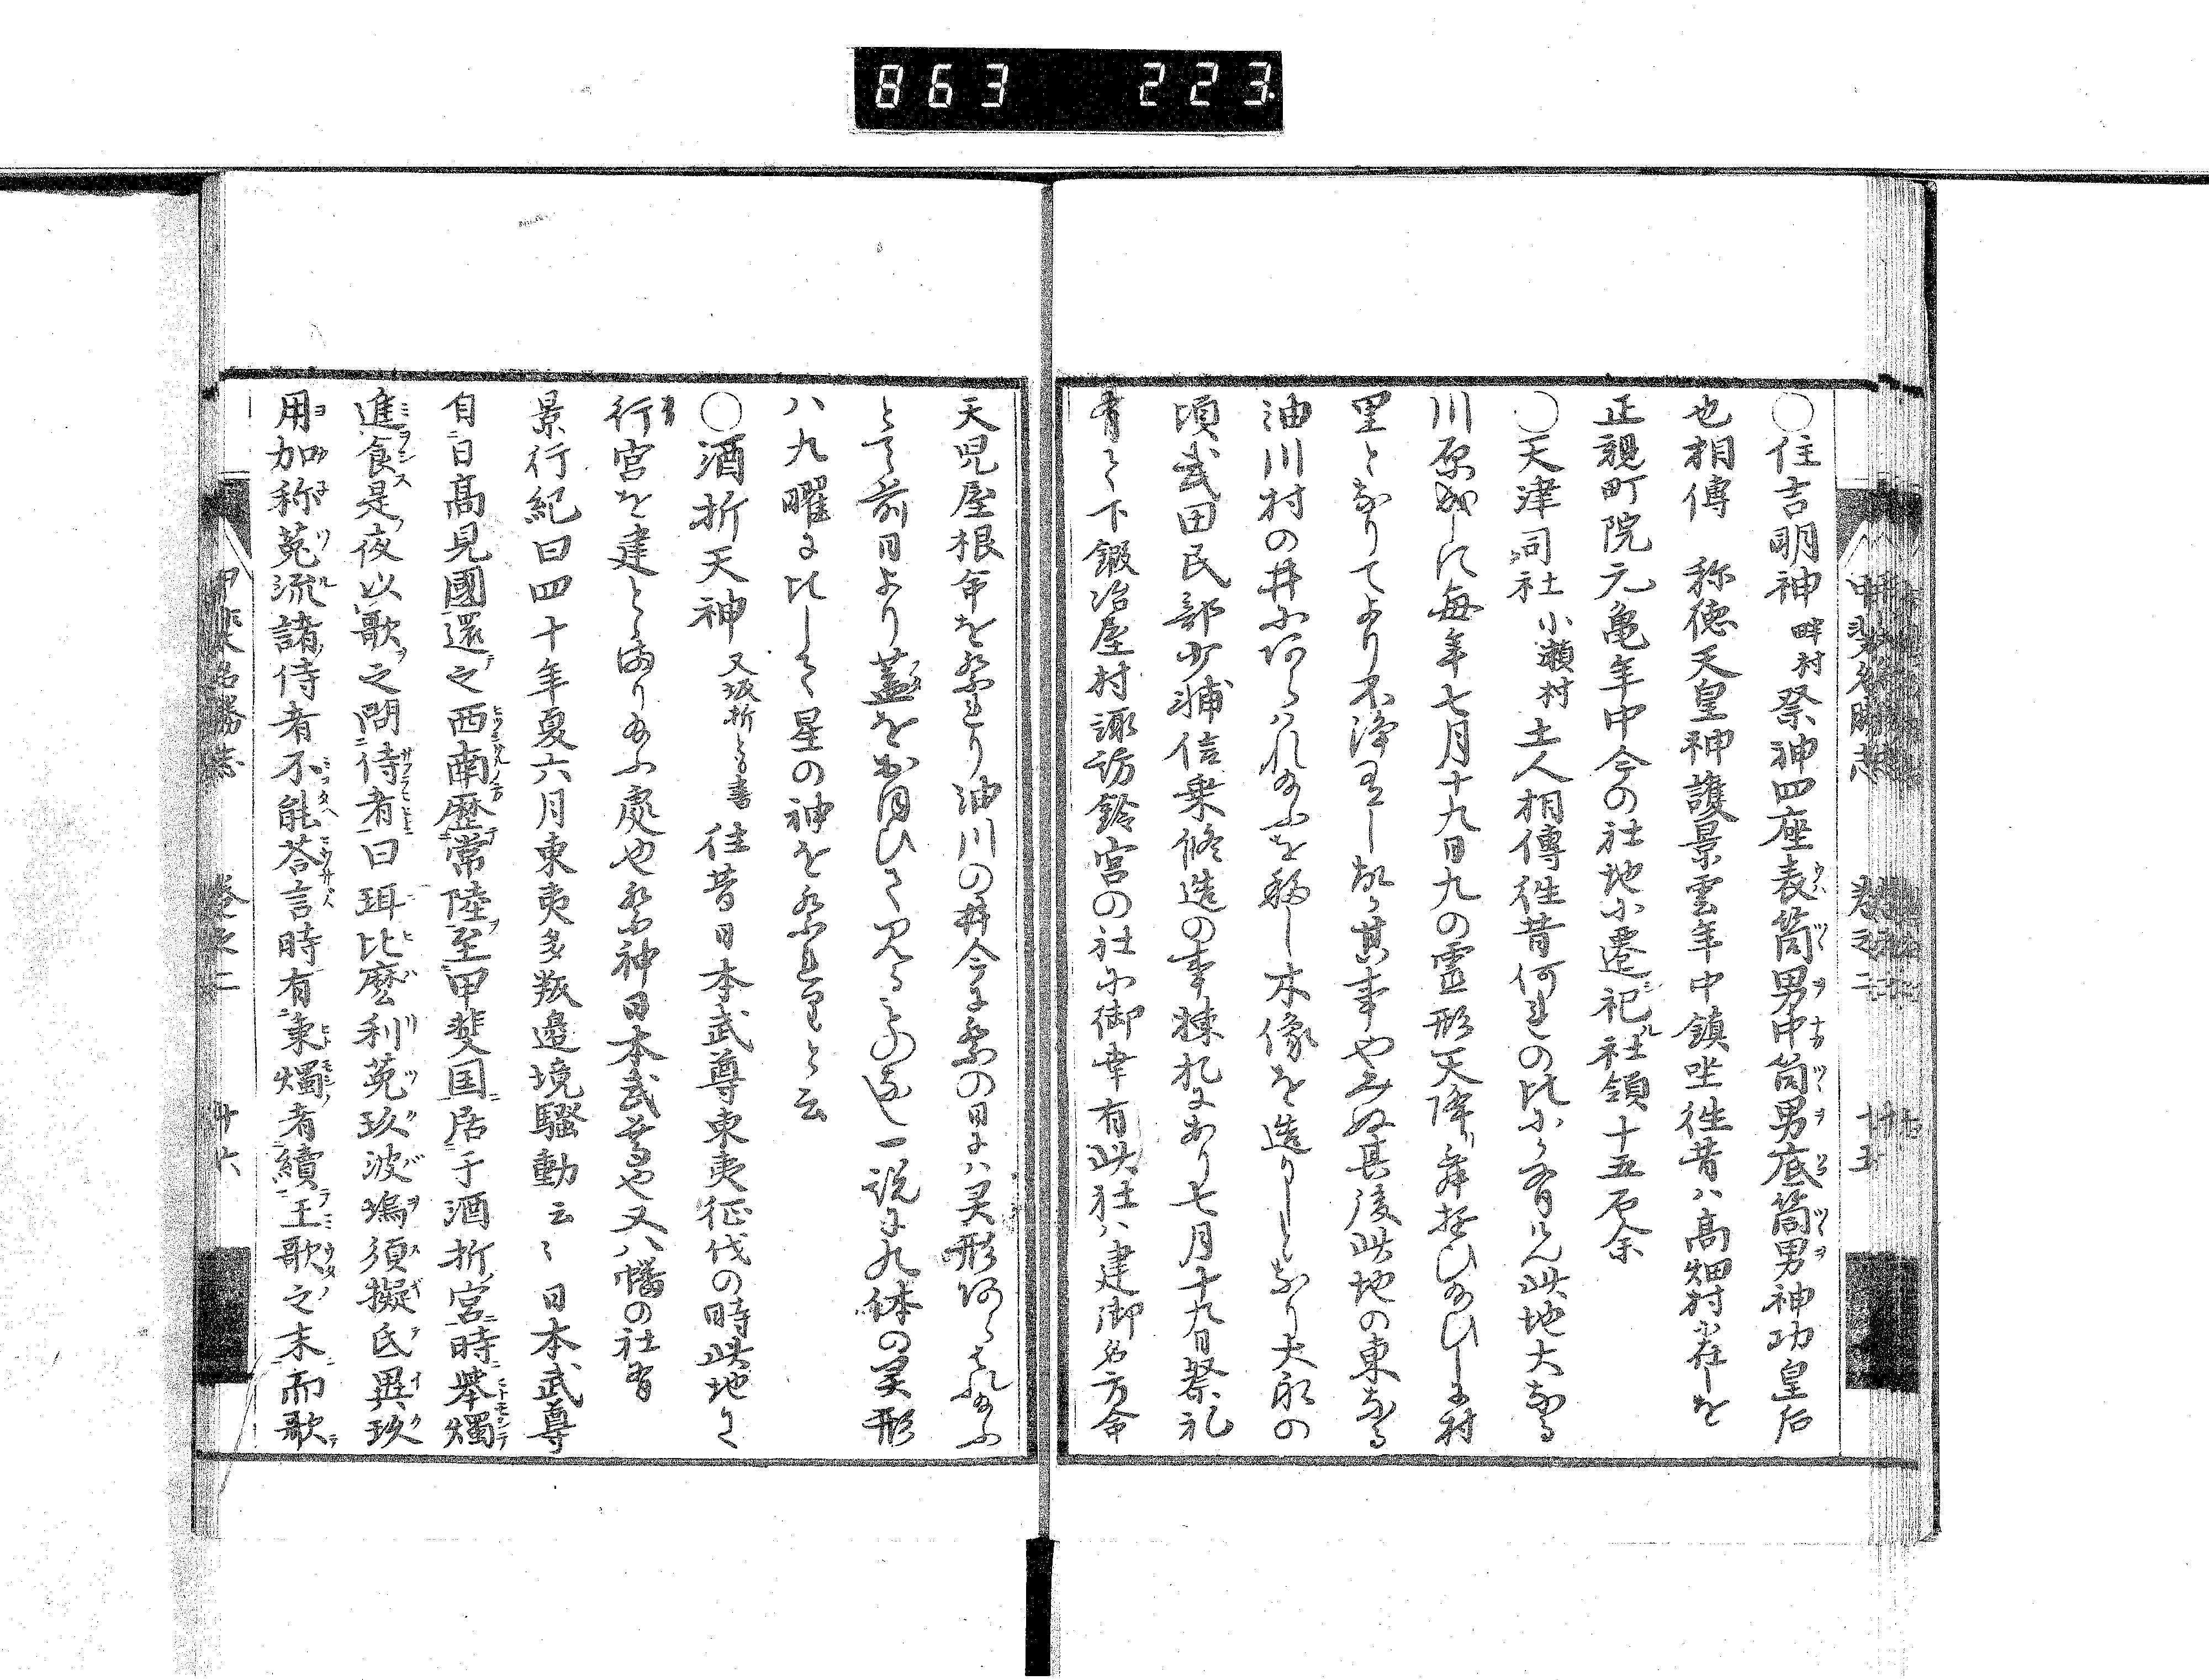 863 223
甲斐名勝志 巻之二 十五
〇住吉明神 畔村 祭神四座表筒男中筒男底筒男神功皇后
也相傳 称徳天皇神護景雲年中鎮坐徃昔ハ高畑村に在しを
正親町院元亀年中今の社地に遷祀社領十五石余
〇天津司社 小瀬村 土人相傳徃昔何れの比にか有けん此地大なる
川原成しに毎年七月十九日九の霊形天降舞遊ひ給ひしに村
里となりてより不浄有し故其事やみぬ其後此地の東なる
油川村の井にあらハれ給ふを移し木像を造りしとなり大永の
頃武田民部少輔信乗修造の事棟札にあり七月十九日祭礼
有て下鍛冶屋村諏訪鈴宮の社に御幸有此社ハ建御名方命
天児屋根命を祭れり油川の井今に祭の日にハ灵形あらはれ給ふ
とて前日より蓋をおほひて見ることなし一説に九体の灵形
ハ九曜に比して星の神を祭れると云
〇酒折天神 又坂折とも書 往昔日本武尊東夷征伐の時此地に
行宮を建とゝまり給ふ處也祭神日本武尊也又八幡の社有
景行紀曰四十年夏六月東夷多叛邊境騒動云〻日本武尊
自日高見國還之西南歴常陸至甲斐国居于酒折宮時挙燭
進食是夜以歌之問侍者曰珥比麼利菟玖波塢須擬氐異玖
用加称菟流諸侍者不能荅言時有秉燭者續王歌之末而歌
甲斐名勝志 巻之二 十六